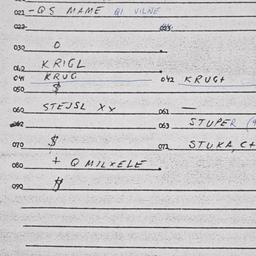 021 -QS MAME QI VILNE
022 023
030 O
040 KRIGL
041 KRUG 042 KRUG+
050 $
060 STEJSL XX 061 —
062 063 STUPER
070 $ 071 STUKA, C+
080 + Q MILXELE
090 $